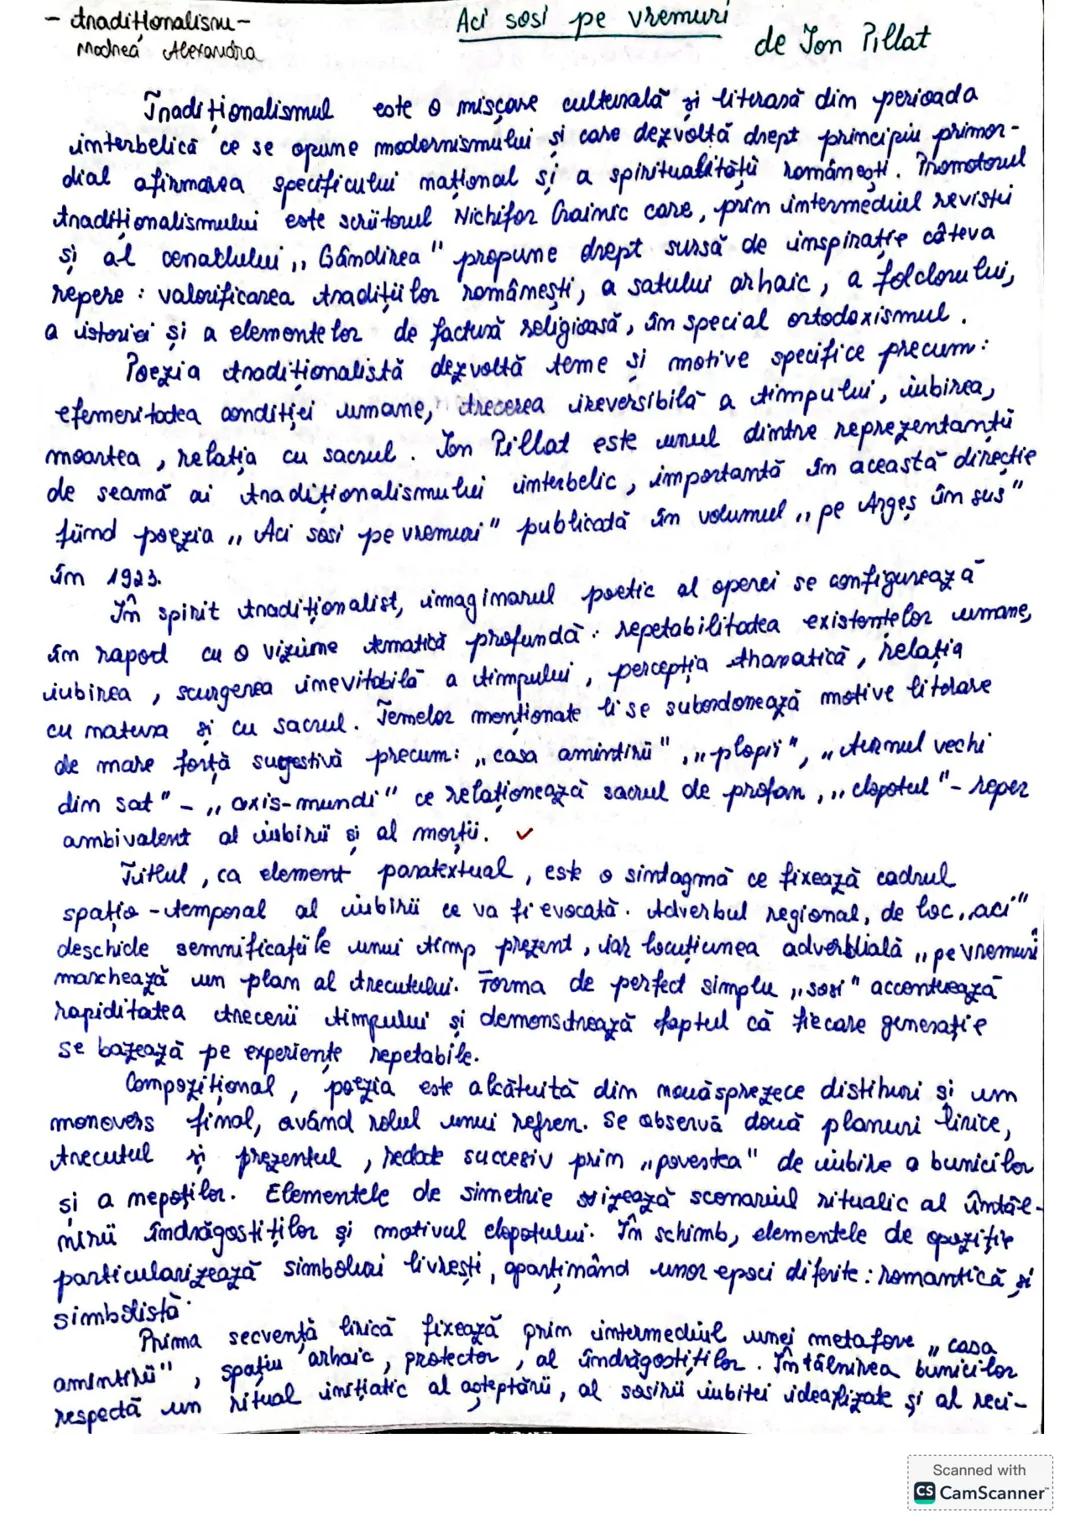 - tradiționalism -
Modnea Alexandra
Aci sosi pe vremuri
de Ion Pillat
Tradiționalismul este o mișcare culturală și literară din perioada
interbelică ce se opune modernismului și care dezvoltă drept principiu primor-
dial afirmarea specificului național și a spiritualității românești. Promotorul
tradiționalismului este scriitorul Nichifor Crainic care, prin intermediul revistei
și al cenaclului „Gândirea" propune drept sursă de inspirație câteva
repere : valorificarea tradițiilor românești, a satului arhaic, a folclorului,
a istoriei și a elementelor de factură religioasă, în special ortodoxismul.
Poezia tradiționalistă dezvoltă teme și motive specifice precum:
efemeritatea condiției umane, trecerea ireversibilă a timpului, iubirea,
moartea, relația cu sacrul. Ion Pillat este unul dintre reprezentanții
de seamă ai tradiționalismului interbelic, importantă în această direcție
fiind poezia „Aci sosi pe vremuri" publicată în volumul „pe Argeș în sus"
în 1923.
În spirit tradiționalist, imaginarul poetic al operei se configurează
în raport cu o viziune tematică profundă: repetabilitatea existențelor umane,
iubirea, scurgerea inevitabilă a timpului, percepția thanatică, relația
cu natura și cu sacrul. Temelor menționate li se subordonează motive literare
de mare forță sugestivă precum: „casa amintirii", „plopii", „turnul vechi
din sat" - „axis-mundi" ce relaționează sacrul de profan, „clopotul" - reper
ambivalent al iubirii și al morții. ✓
Titlul, ca element paratextual, este o sintagmă ce fixează cadrul
spațio-temporal al iubirii ce va fi evocată. Adverbul regional, de loc „aci"
deschide semnificațiile unui timp prezent, iar locuțiunea adverbială „pe vremuri"
marchează un plan al trecutului. Forma de perfect simplu „sosi" accentuează
rapiditatea trecerii timpului și demonstrează faptul că fiecare generație
se bazează pe experiențe repetabile.
Compozițional, poezia este alcătuită din nouăsprezece distihuri și un
monovers final, având rolul unui refren. Se observă două planuri lirice,
trecutul și prezentul, redate succesiv prin „povestea" de iubire a bunicilor
și a nepoților. Elementele de simetrie vizează scenariul ritualic al întâl-
nirii îndrăgostiților și motivul clopotului. În schimb, elementele de opoziție
particularizează simboluri livrești, aparținând unor epoci diferite: romantică și
simbolistă.
Prima secvență lirică fixează prin intermediul unei metafore „casa
amintirii", spațiu arhaic, protector, al îndrăgostiților. Întâlnirea bunicilor
respectă un ritual inițiatic al așteptării, al sosirii iubitei idealizate și al reci-
Scanned with
CS CamScanner